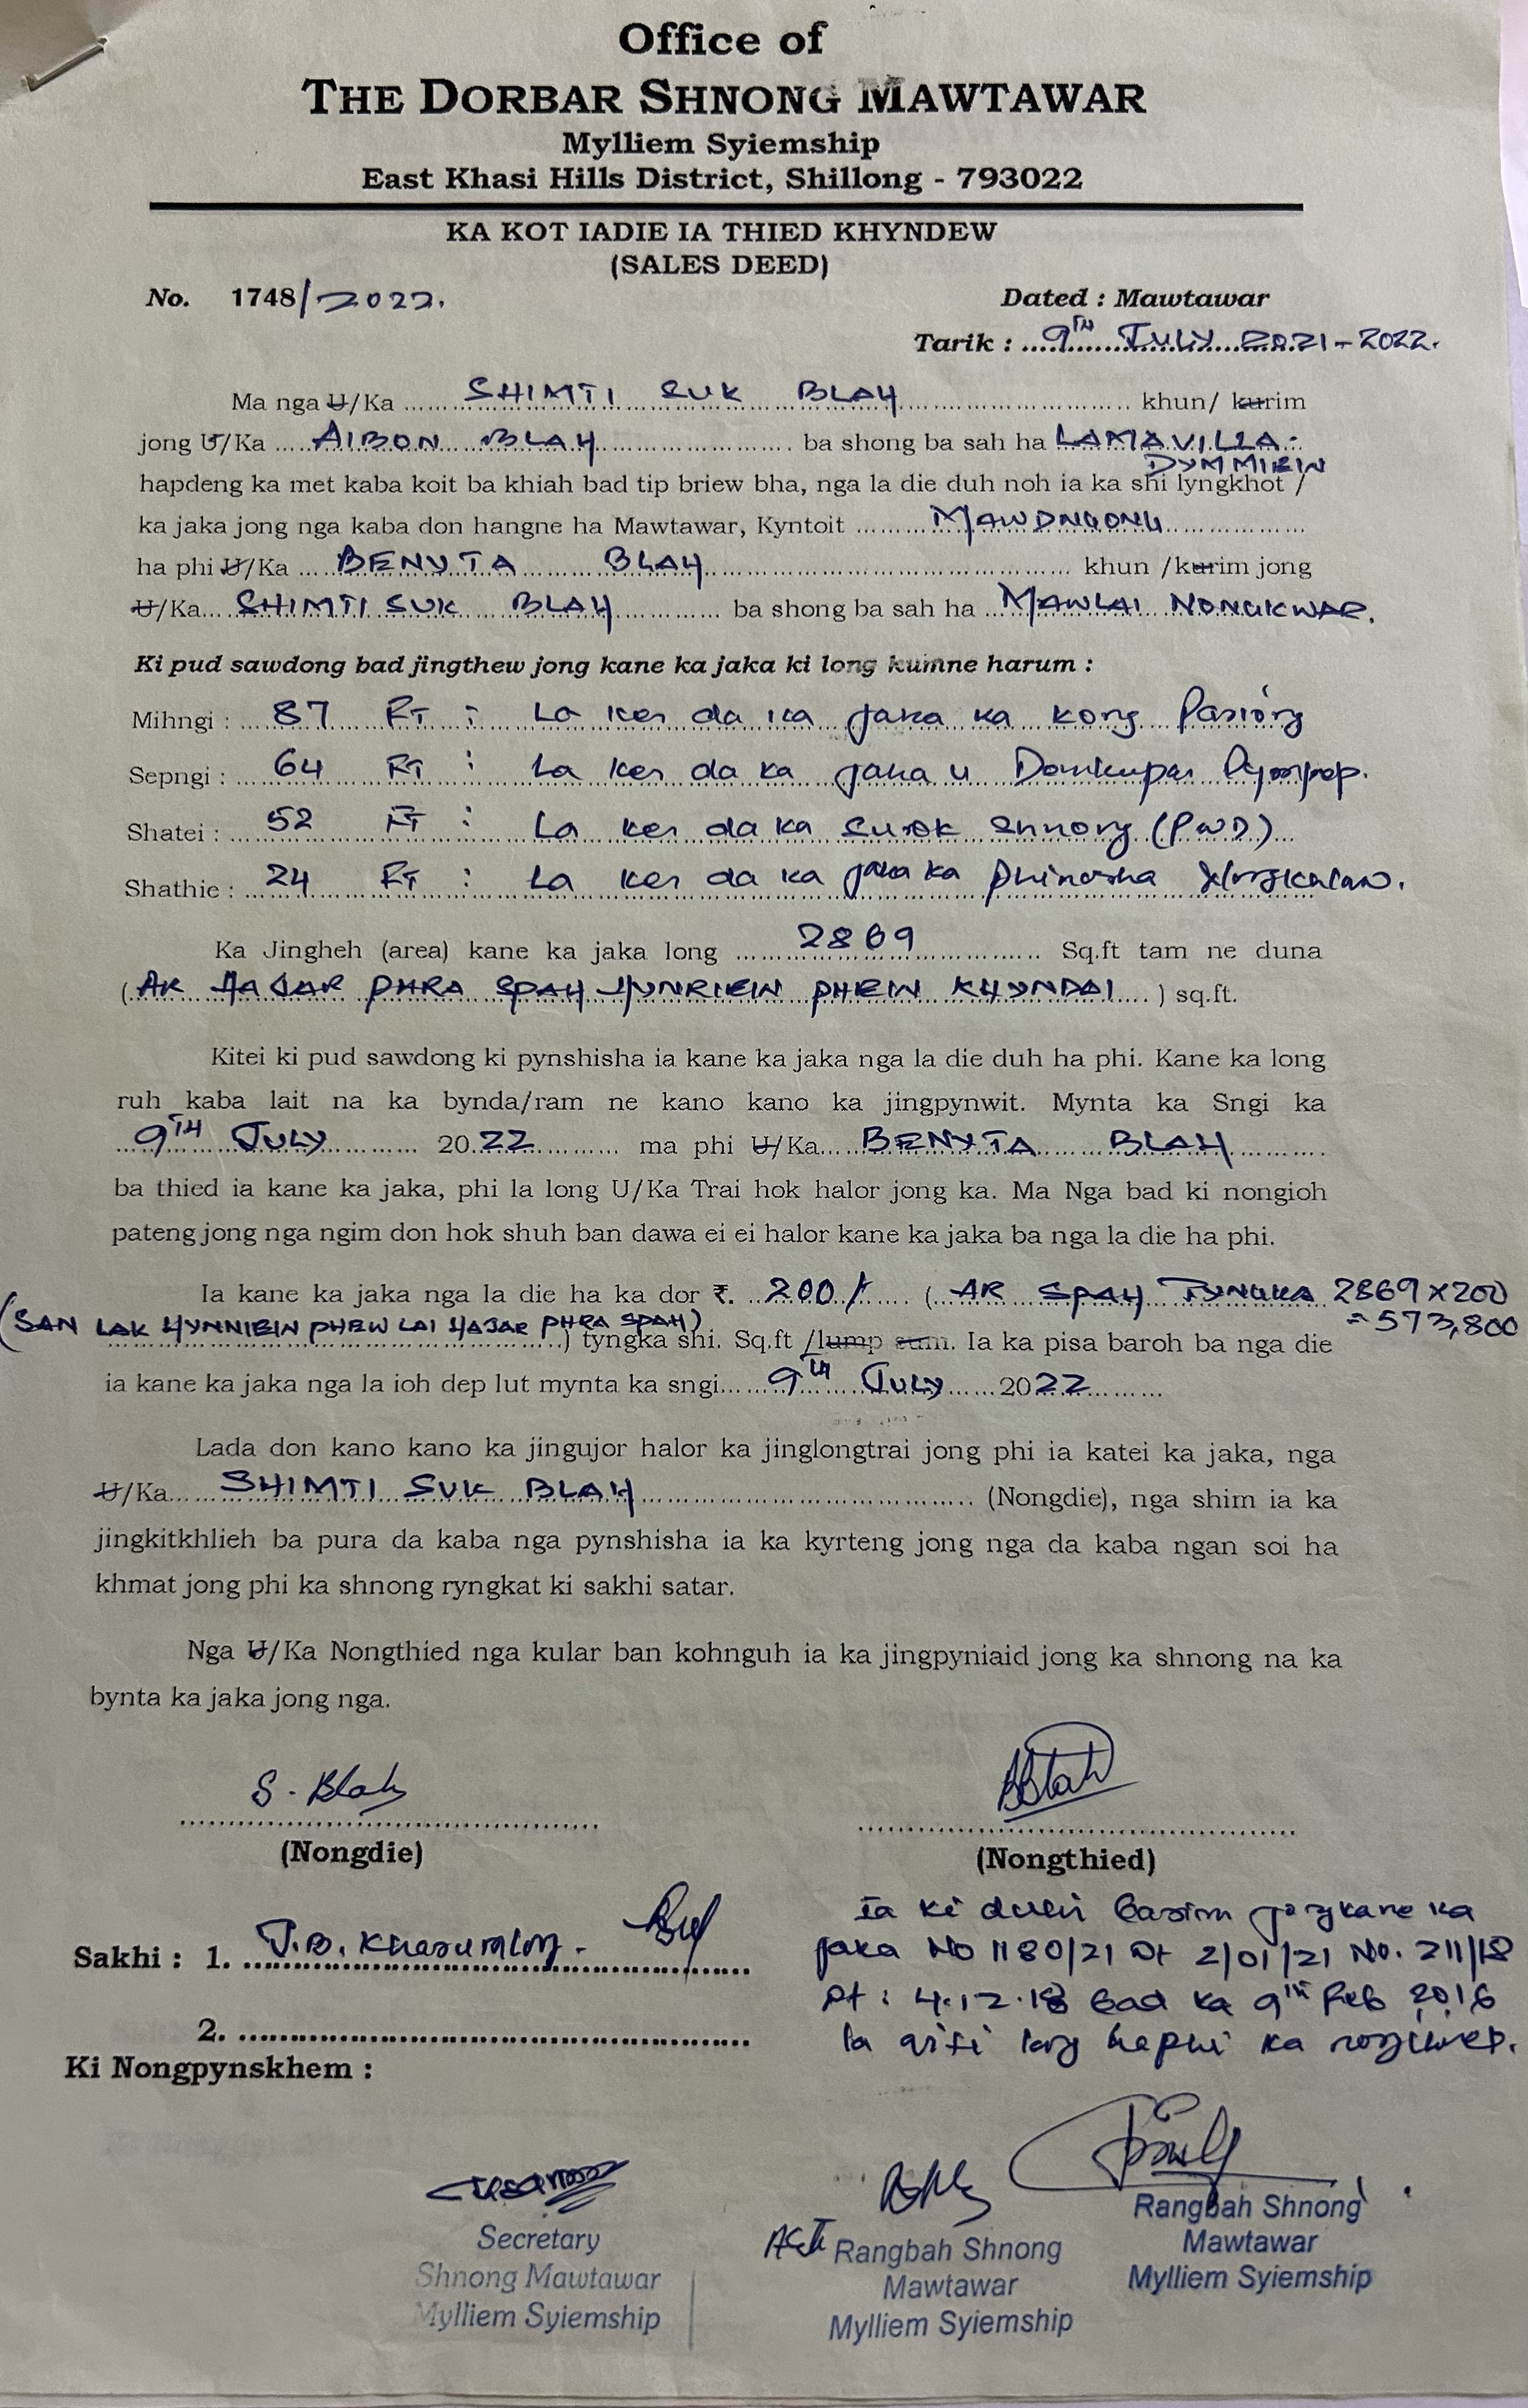 Office of
THE DORBAR SHNONG MAWTAWAR
Mylliem Syiemship
East Khasi Hills District, Shillong - 793022
KA KOT IADIE IA THIED KHYNDEW
(SALES DEED)
No. 1748/2022.
Dated : Mawtawar
Tarik : 9TH JULY 2021-2022.
Ma nga U/Ka SHIMTI SUK BLAH khun/ kurim
jong U/Ka AIBON BLAH ba shong ba sah ha LAMAVILLA
DYMMIEIN
hapdeng ka met kaba koit ba khiah bad tip briew bha, nga la die duh noh ia ka shi lyngkhot /
ka jaka jong nga kaba don hangne ha Mawtawar, Kyntoit MAWDNGONG
ha phi U/Ka BENYTA BLAH khun /kurim jong
U/Ka SHIMTI SUK BLAH ba shong ba sah ha MAWLAI NONGKWAR.
Ki pud sawdong bad jingthew jong kane ka jaka ki long kumne harum :
Mihngi : 87 FT : La ker da ka jaka ka kong
Sepngi : 64 FT : La ker da ka jaka u Domkupar
Shatei : 52 FT : La ker da ka surok shnong (PWD)
Shathie : 24 FT : La ker da ka jaka ka
Ka Jingheh (area) kane ka jaka long 2869 Sq.ft tam ne duna
(AR HAJAR PHRA SPAH HYNRIEW PHEW KHYNDAI) sq.ft.
Kitei ki pud sawdong ki pynshisha ia kane ka jaka nga la die duh ha phi. Kane ka long
ruh kaba lait na ka bynda/ram ne kano kano ka jingpynwit. Mynta ka Sngi ka
9TH JULY 2022 ma phi U/Ka BENYTA BLAH
ba thied ia kane ka jaka, phi la long U/Ka Trai hok halor jong ka. Ma Nga bad ki nongioh
pateng jong nga ngim don hok shuh ban dawa ei ei halor kane ka jaka ba nga la die ha phi.
Ia kane ka jaka nga la die ha ka dor ₹. 200/- (AR SPAH TYNGKA 2869 x 200
= 573,800
(SAN LAK HYNNIEW PHEW LAI HAJAR PHRA SPAH)
) tyngka shi. Sq.ft /lump sum. Ia ka pisa baroh ba nga die
ia kane ka jaka nga la ioh dep lut mynta ka sngi 9th JULY 2022
Lada don kano kano ka jingujor halor ka jinglongtrai jong phi ia katei ka jaka, nga
U/Ka SHIMTI SUK BLAH (Nongdie), nga shim ia ka
jingkitkhlieh ba pura da kaba nga pynshisha ia ka kyrteng jong nga da kaba ngan soi ha
khmat jong phi ka shnong ryngkat ki sakhi satar.
Nga U/Ka Nongthied nga kular ban kohnguh ia ka jingpyniaid jong ka shnong na ka
bynta ka jaka jong nga.
S. Blah
(Nongdie)
(Nongthied)
Sakhi : 1.
2.
Ia ki dulir barim jong kane ka
jaka No 1180/21 Dt 2/01/21 No. 211/18
Dt : 4.12.18 bad ka 9th Feb 2016
la
Ki Nongpynskhem :
Secretary
Shnong Mawtawar
Mylliem Syiemship
Rangbah Shnong
Mawtawar
Mylliem Syiemship
Rangbah Shnong
Mawtawar
Mylliem Syiemship